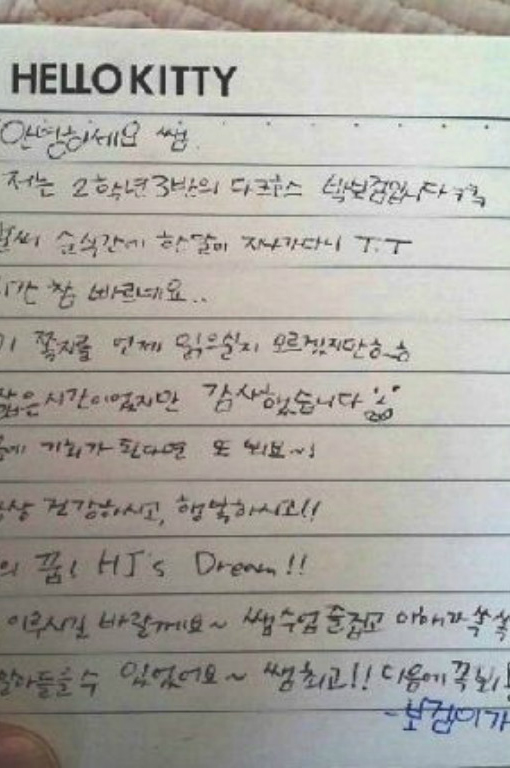 HELLO KITTY
안녕하세요 쌤.
저는 2학년3반의 다크호스 박보검입니다ㅋㅋ
벌써 순식간에 한달이 지나가다니 T.T
시간 참 빠르네요..
이 쪽지를 언제 읽으실지 모르겠지만ㅎㅎ
짧은시간이었지만 감사했습니다
기회가 된다면 또 뵈요~!
항상 건강하시고, 행복하시고!!
의 꿈! HJ's Dream!!
이루시길 바랄께요~ 쌤수업 즐겁고 이해가 쏙쏙
알아들을수 있었어요~ 쌤최고!! 다음에 꼭
-보검이가